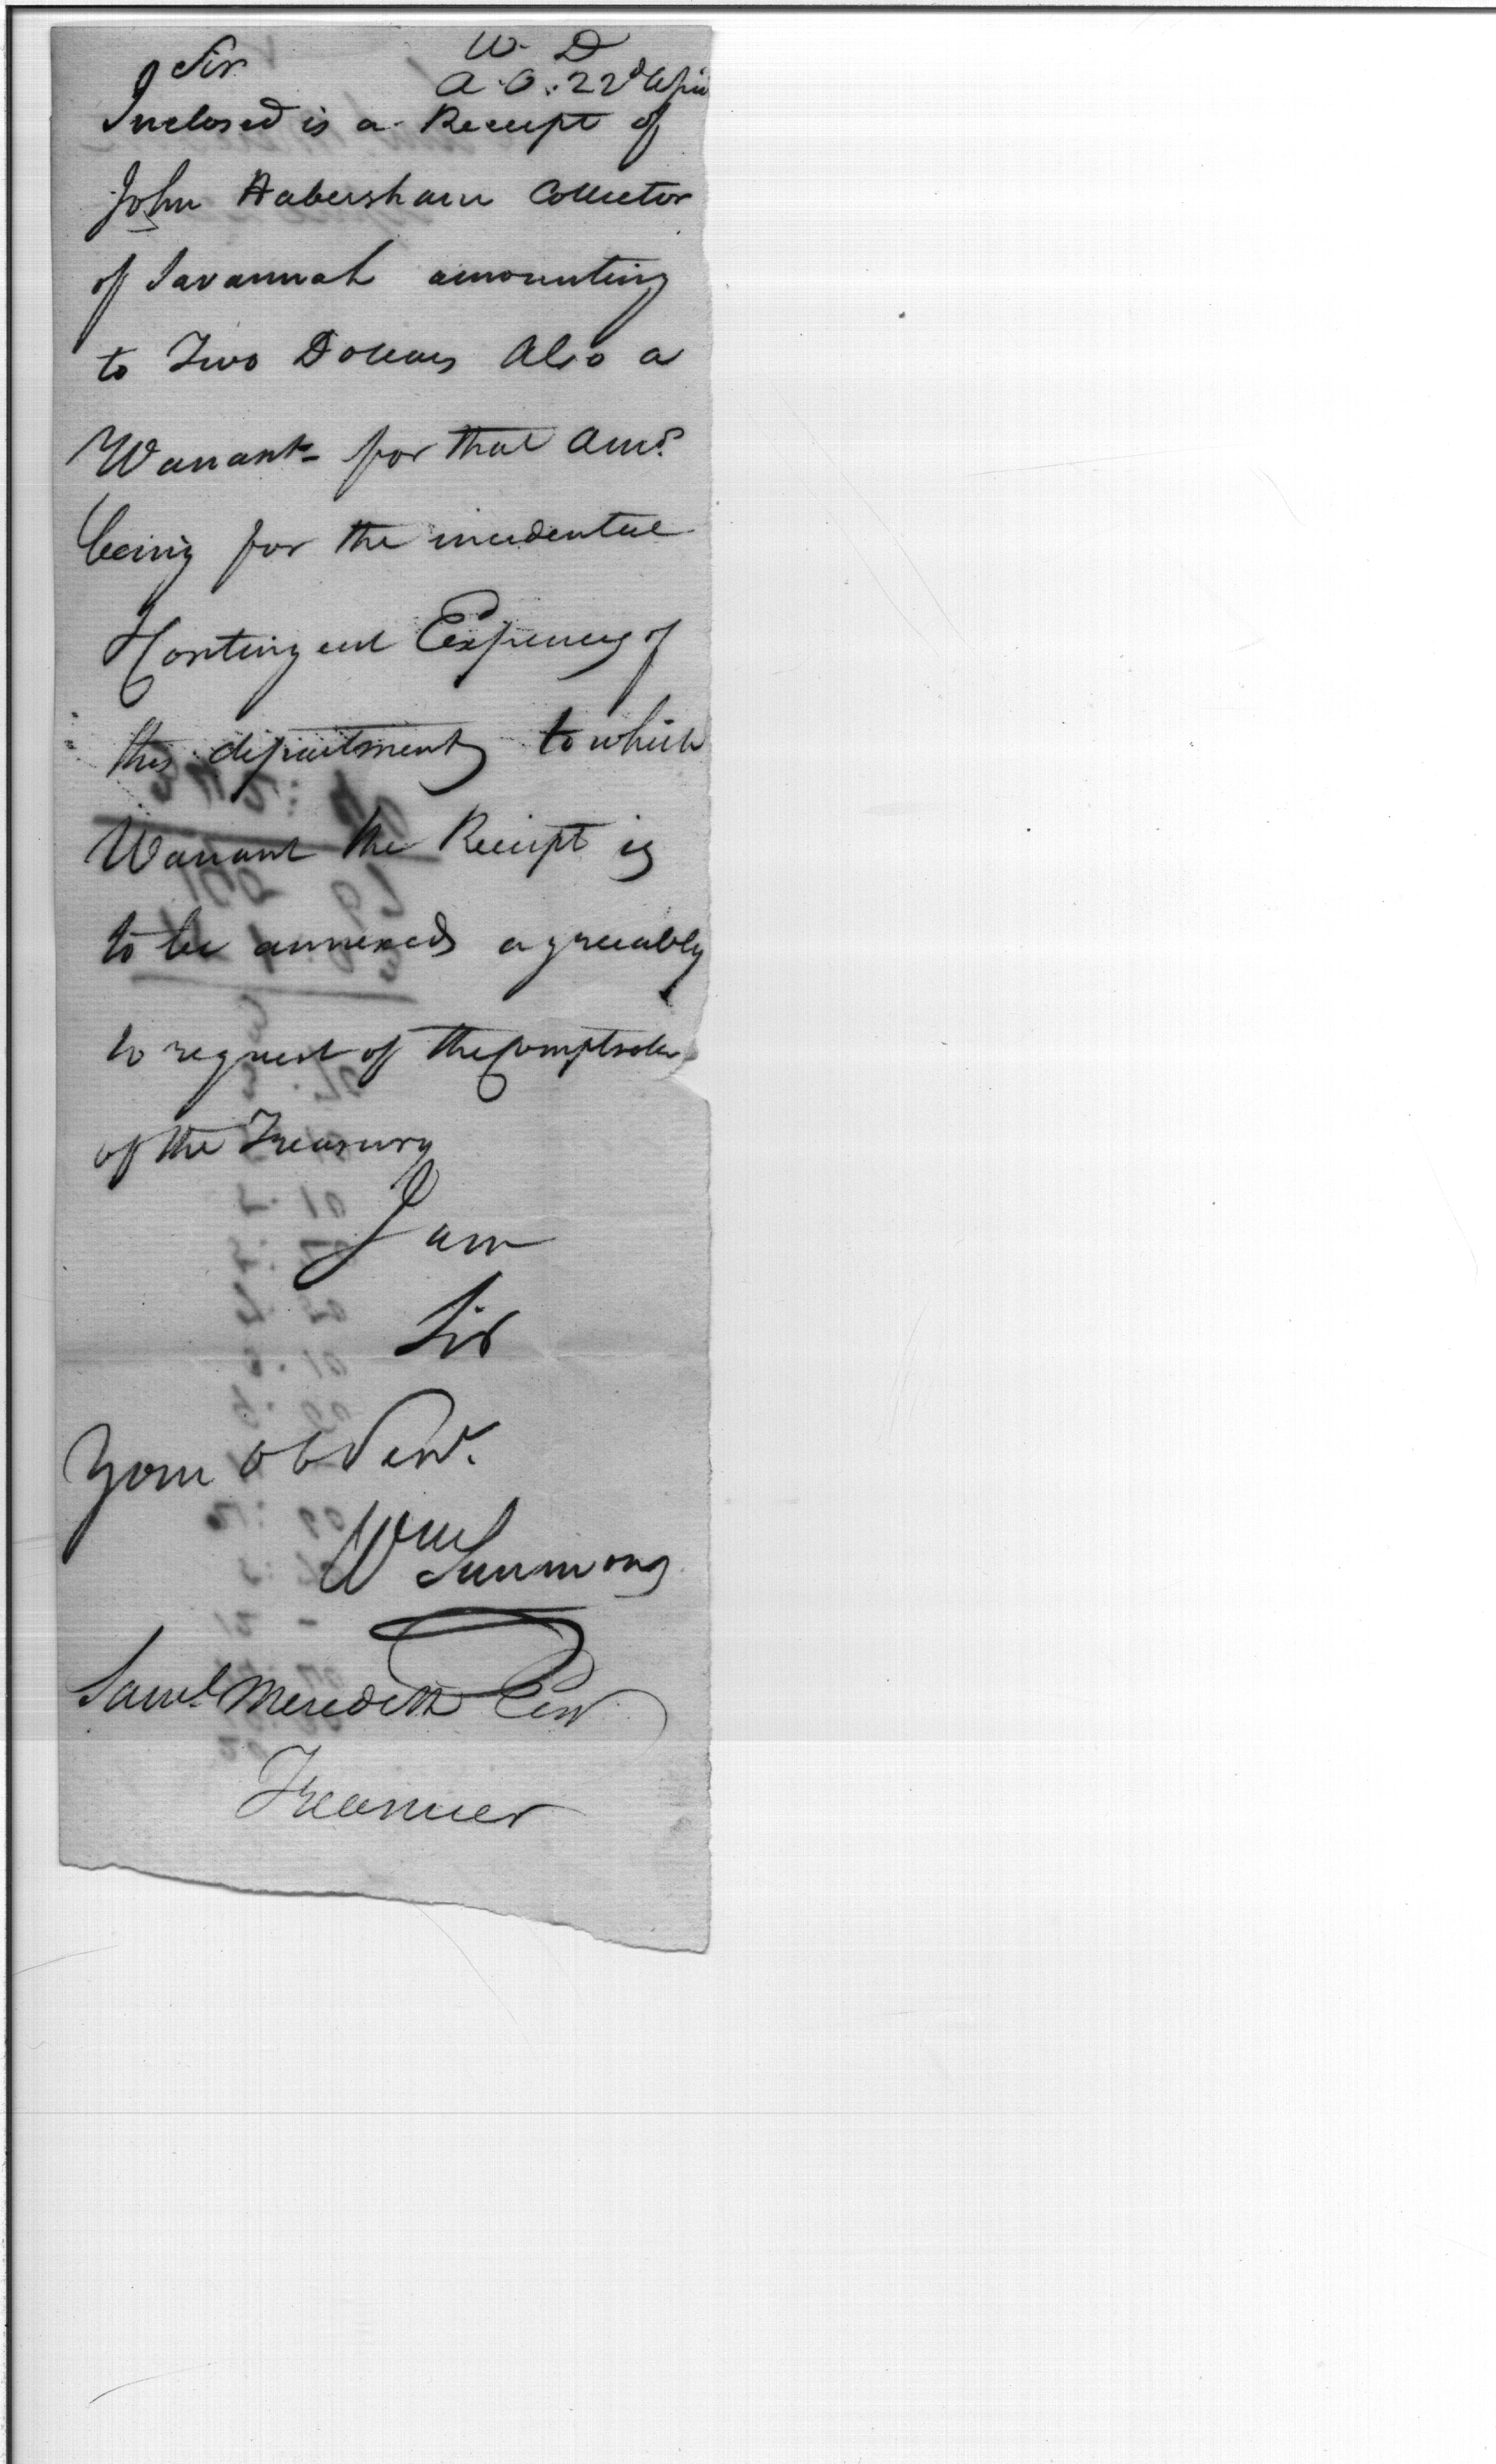 W. D
Sir A.O. 22d Apri
Inclosed is a Receipt of
John Habersham Collector
of Savannah amounting
to Two Dollars Also a
Warrant for that amt.
being for the incidental
Contingent Expences of
this department to which
Warrant the Receipt is
to be annexed agreeably
to request of the Comptroller
of the Treasury
I am
Sir
Your Ob Servt.
Wm Simmons
Saml. Meredith Esqr
Treasurer